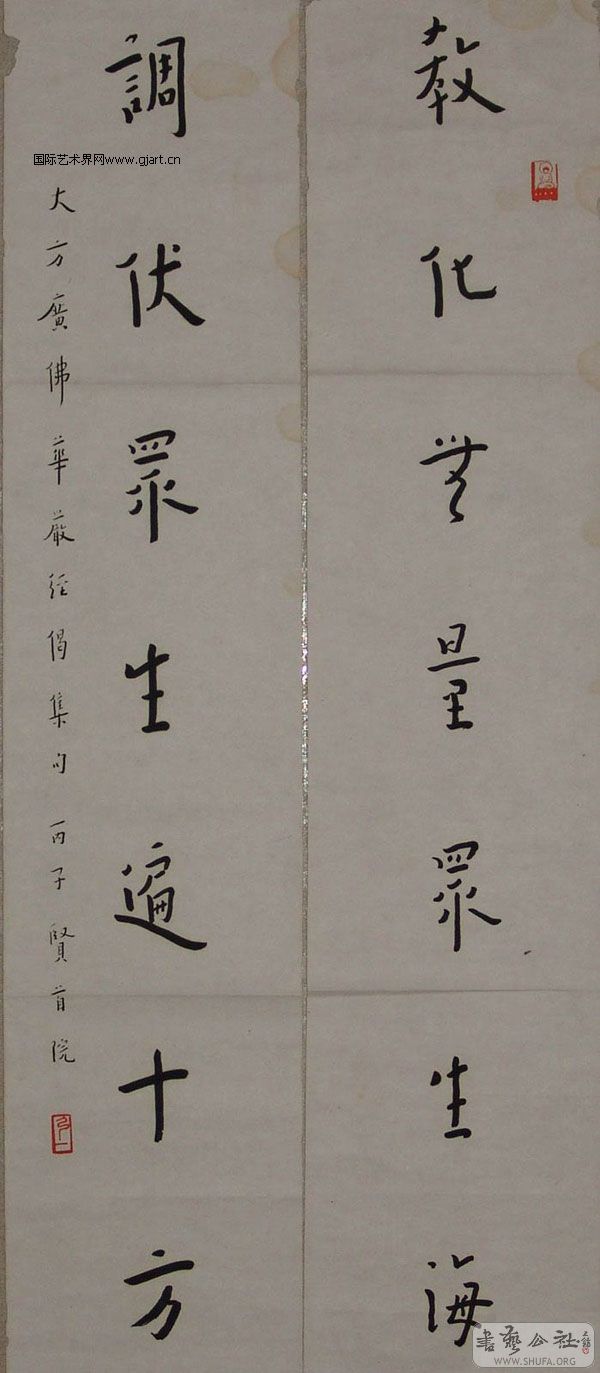 教化无量眾生海
調伏眾生遍十方
大方廣佛華嚴經偈集句 丙子賢首院
国际艺术界网www.gjart.cn
书艺公社
WWW.SHUFA.ORG